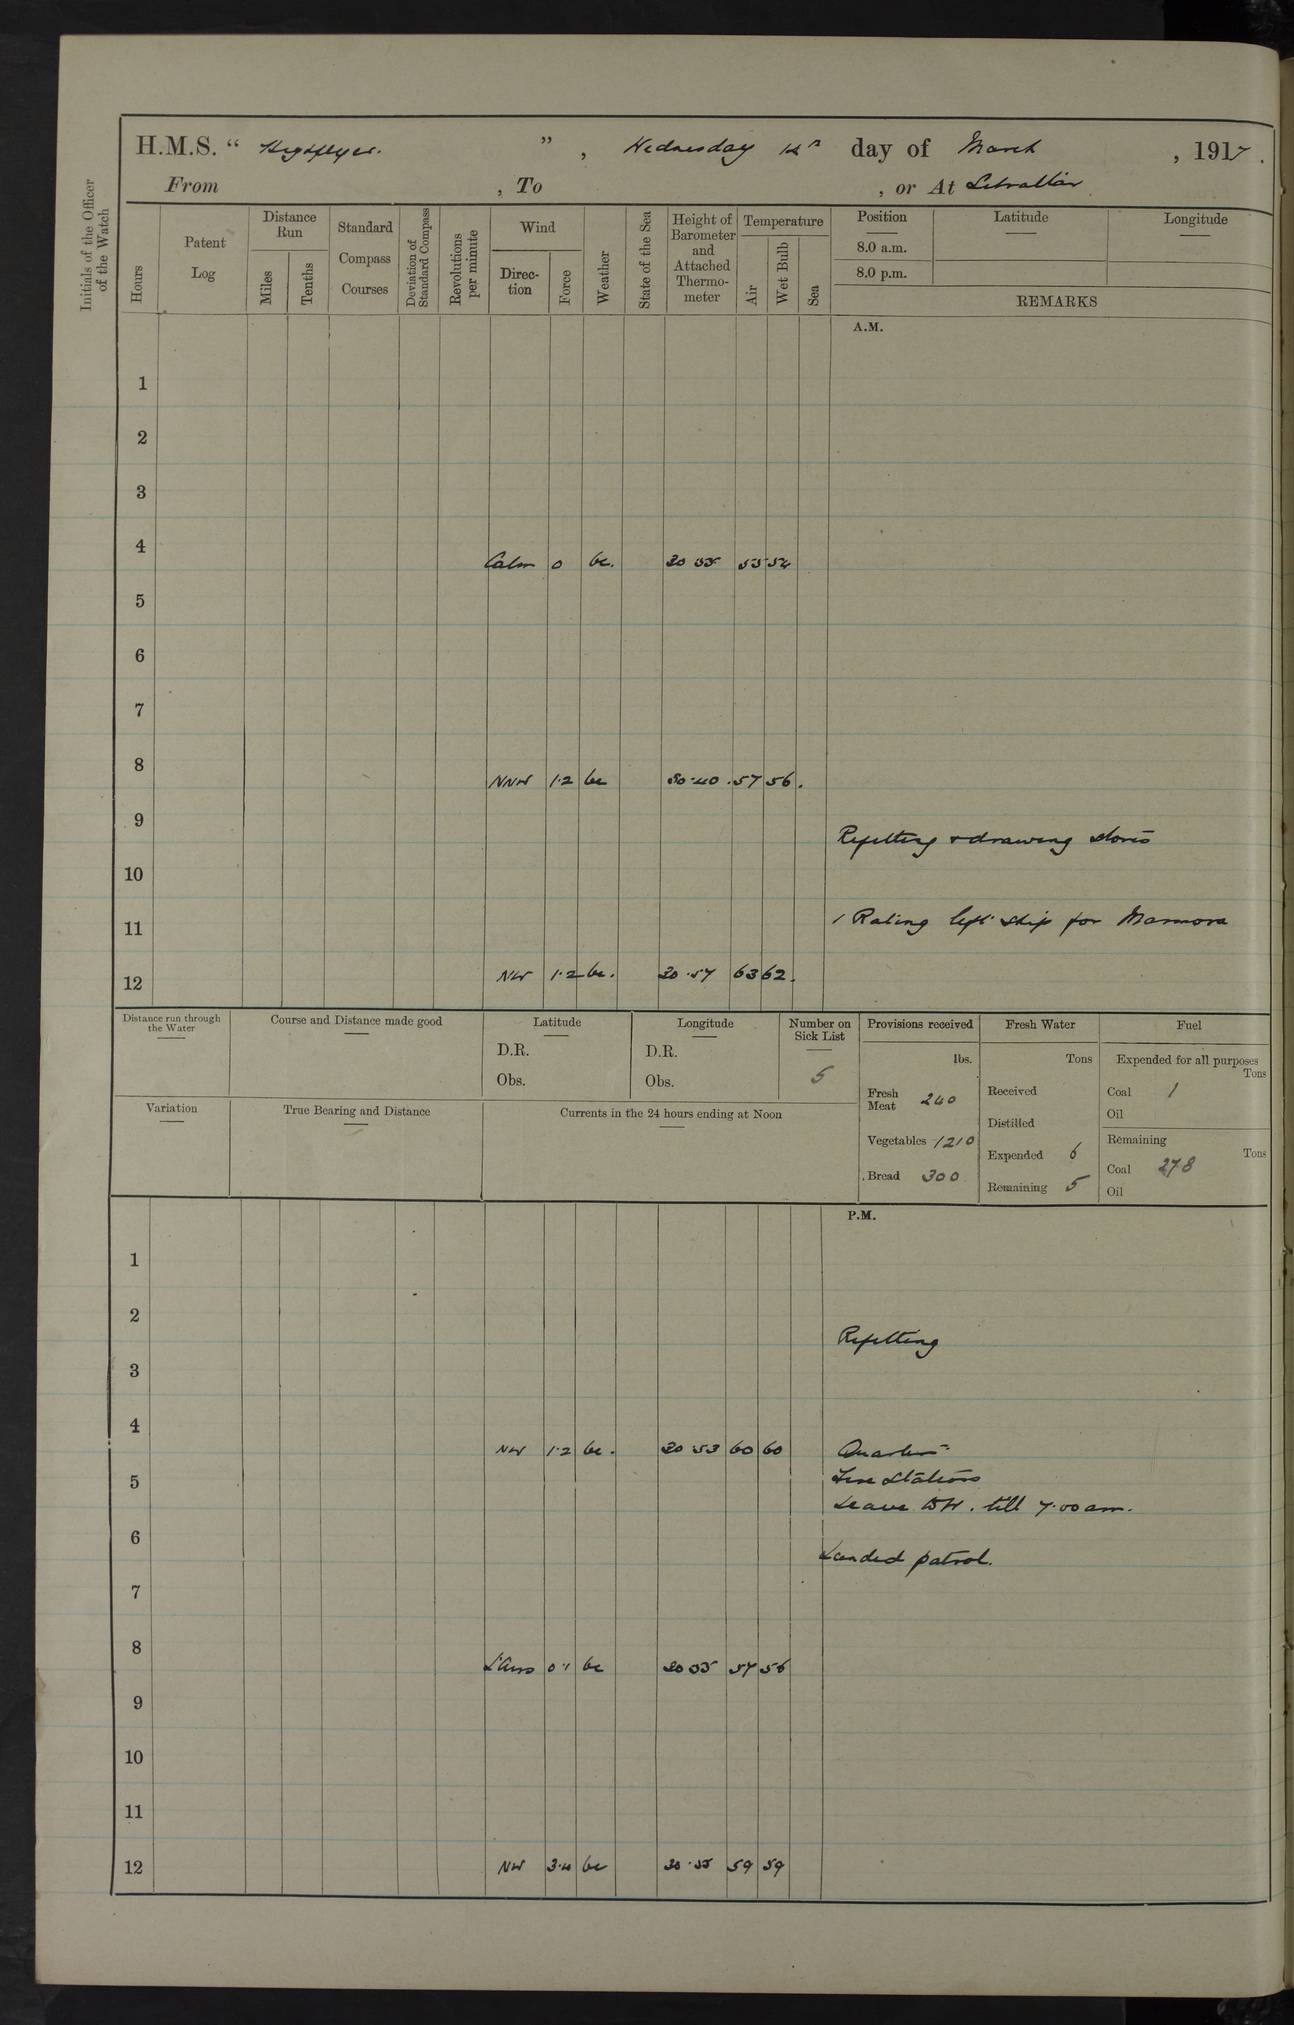 H.M.S. “ Highflyer. ” , Wednesday 14th day of March , 1917 .
From , To , or At Gibraltar
Initials of the Officer of the Watch
Hours
Patent Log
Distance Run
Miles
Tenths
Standard Compass Courses
Deviation of Standard Compass
Revolutions per minute
Wind
Direc-tion
Force
Weather
State of the Sea
Height of Barometer and Attached Thermo-meter
Temperature
Air
Wet Bulb
Sea
Position Latitude Longitude
8.0 a.m.
8.0 p.m.
REMARKS
A.M.
1
2
3
4 Calm 0 bc. 30 55 54
5
6
7
8 NNW 1·2 bc 30·40 57 56.
9
Refitting & drawing stores
10
11 1 Rating left ship for Marmora
12 NW 1·2 bc. 30·57 63 62.
Distance run through the Water
Course and Distance made good
Latitude
D.R.
Obs.
Longitude
D.R.
Obs.
Number on Sick List
5
Provisions received
lbs.
Fresh Meat 240
Vegetables 1210
Bread 300
Fresh Water
Tons
Received
Distilled
Expended 6
Remaining 5
Fuel
Expended for all purposes
Tons
Coal 1
Oil
Remaining
Tons
Coal 278
Oil
Variation
True Bearing and Distance
Currents in the 24 hours ending at Noon
P.M.
1
2
Refitting
3
4 NW 1·2 bc. 30·53 60 60 Quarters
5 Fire Stations
Leave till 7.00 am.
6
Landed patrol.
7
8 L'Airs 0·1 bc 30 57 56
9
10
11
12 NW 3·4 bc 30·55 59 59